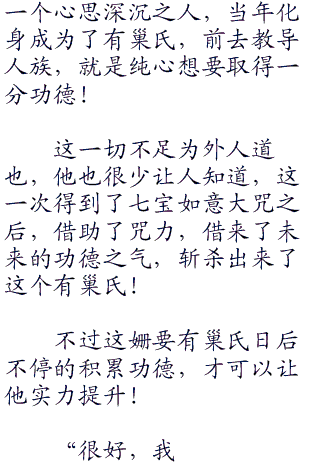 一个心思深沉之人，当年化
身成为了有巢氏，前去教导
人族，就是纯心想要取得一
分功德！
这一切不足为外人道
也，他也很少让人知道，这
一次得到了七宝如意大咒之
后，借助了咒力，借来了未
来的功德之气，斩杀出来了
这个有巢氏！
不过这姗要有巢氏日后
不停的积累功德，才可以让
他实力提升！
“很好，我